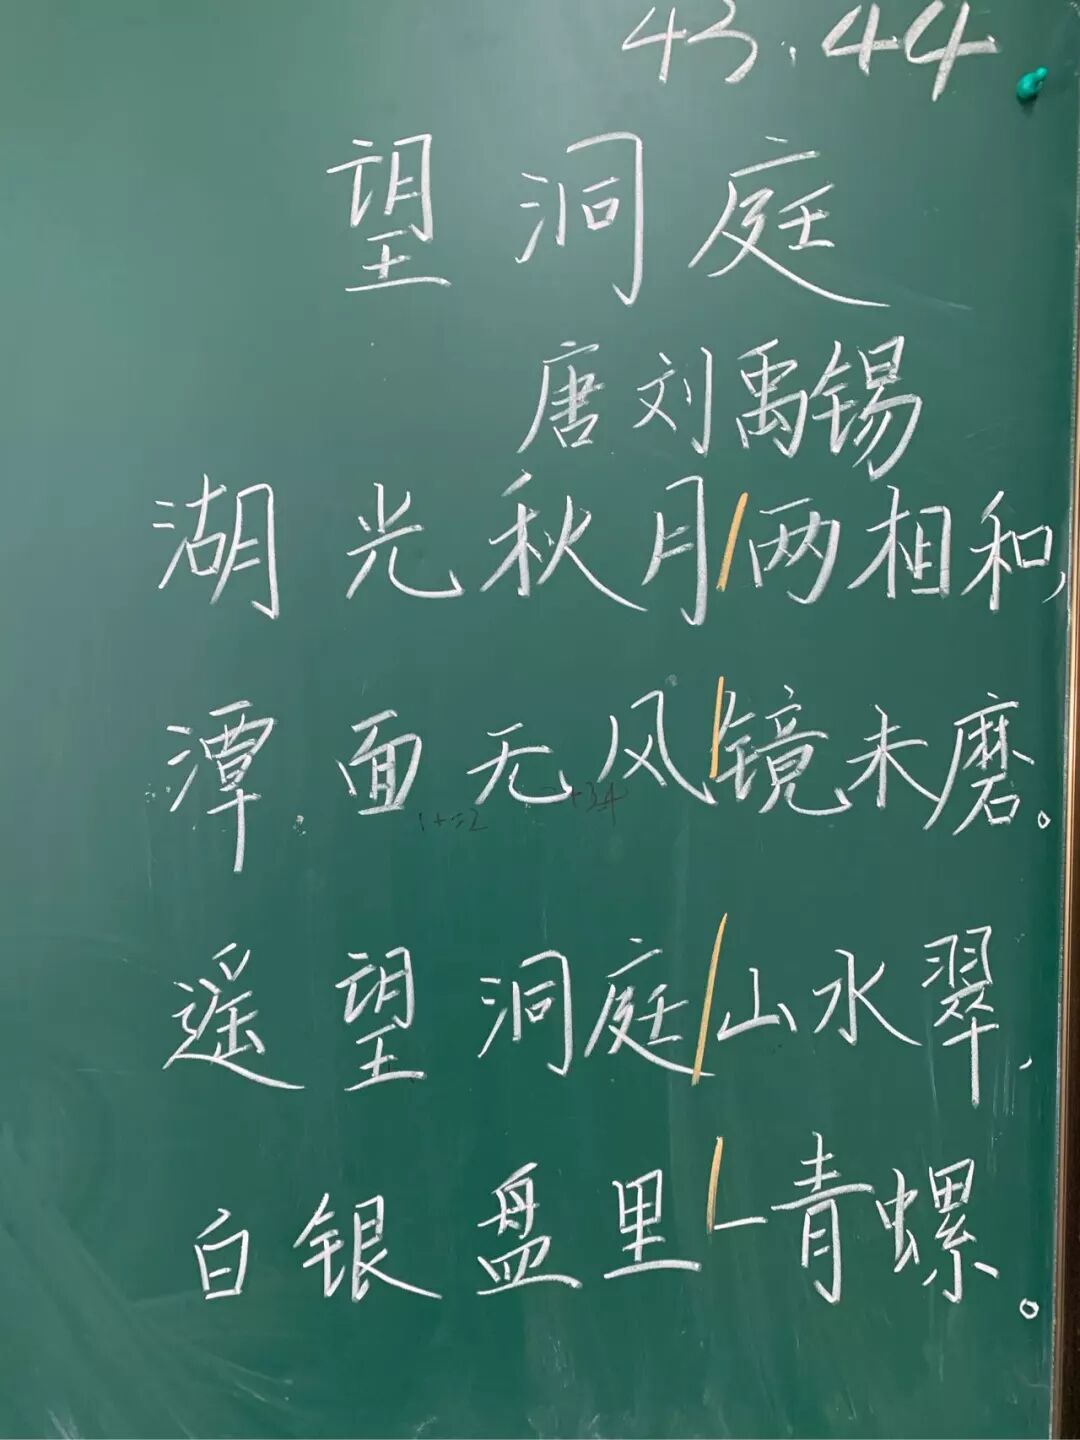 43.44
望洞庭
唐 刘禹锡
湖光秋月/两相和,
潭面无风/镜未磨。
1+=2
遥望洞庭/山水翠,
白银盘里/一青螺。